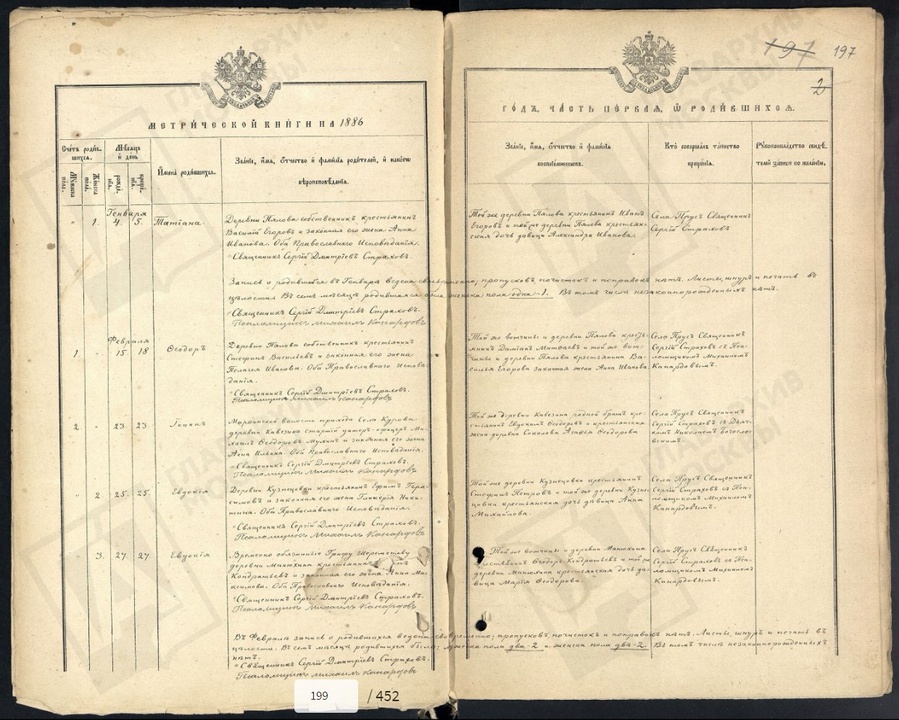 МЕТРИЧЕСКОЙ КНИГИ НА 1886
Счетъ родив-
шихся.
Мужеска
пола.
Женска
пола.
Мѣсяцъ
и день
рожде-
нія.
креще-
нія.
Имена родившихся.
Званіе, имя, отчество и фамилія родителей, и какого
вѣроисповѣданія.
Генваря
" 1. 4. 5. Татіана.
Деревни Пялова собственникъ крестьянинъ
Василій Егоровъ и законная его жена Анна
Иванова. Оба Православнаго Исповѣданія.
Священникъ Сергій Дмитріевъ Страховъ.
Запись о родившихся въ Генварѣ ведена своевременно, пропусковъ, почистокъ и поправокъ нѣтъ. Листы, шнуръ и печать въ
цѣлости. Въ семъ мѣсяцѣ родившихся женска пола одна – 1. Въ томъ числѣ незаконнорожденныхъ нѣтъ.
Священникъ Сергій Дмитріевъ Страховъ.
Псаломщикъ Михаилъ
Февраля
1 " 15 18 Ѳеодоръ
Деревни Пялова собственникъ крестьянинъ
Васильевъ и законная его жена
Пелагія Иванова. Оба Православнаго Испов-
данія.
Священникъ Сергій Дмитріевъ Страховъ.
Псаломщикъ Михаилъ
2 " 23 23
волости прихода Села
деревни старшій унтеръ-офицеръ Ми-
хаилъ Ѳеодоровъ и законная его жена
Анна Оба Православнаго Исповѣданія.
Священникъ Сергій Дмитріевъ Страховъ.
Псаломщикъ Михаилъ
" 2 25 25 Евдокія
Деревни Кузнецовки крестьянинъ Ефимъ
и законная его жена Ники-
тина. Оба Православнаго Исповѣданія.
Священникъ Сергій Дмитріевъ Страховъ.
Псаломщикъ Михаилъ
" 3. 27 27 Евдокія
Временно обязанный Графу Шереметеву
деревни крестьянинъ
Кондратьевъ и законная его жена Анна Ма-
ксимова. Оба Православнаго Исповѣданія.
Священникъ Сергій Дмитріевъ Страховъ.
Псаломщикъ Михаилъ
Въ Февралѣ запись о родившихся ведена своевременно; пропусковъ, почистокъ и поправокъ нѣтъ. Листы, шнуръ и печать въ
цѣлости. Въ семъ мѣсяцѣ родившихся было: мужска пола два – 2 и женска пола два – 2. Въ томъ числѣ незаконнорожденныхъ
нѣтъ.
Священникъ Сергій Дмитріевъ Страховъ.
Псаломщикъ Михаилъ
199 / 452
197 197
2
ГОДЪ, ЧАСТЬ ПЕРВАЯ, Ѿ РОДИВШИХСЯ.
Званіе, имя, отчество и фамилія
воспріемниковъ.
Кто совершалъ таинство
крещенія.
Рукоприкладство свидѣ-
телей записи по желанію.
Той же деревни Пялова крестьянинъ Иванъ
Егоровъ и той же деревни Пялова крестьян-
ская дочь дѣвица Александра Иванова.
Села Прусъ Священникъ
Сергій Страховъ
Той же вотчины и деревни Пялова кресть-
янинъ и той же вот-
чины и деревни Пялова крестьянина Ва-
силья Егорова законная жена Анна Иванова.
Села Прусъ Священникъ
Сергій Страховъ съ Пса-
ломщикомъ Михаиломъ
Той же деревни родной братъ кре-
стьянинъ Ѳеодоровъ и крестьянина
жена деревни Ѳеодорова
Села Прусъ Священникъ
Сергій Страховъ съ Дьяч-
комъ Николаемъ Богослов-
скимъ.
Той же деревни Кузнецовки крестьянинъ
Петровъ и той же деревни Кузне-
цовки крестьянская дочь дѣвица Анна
Михайлова.
Села Прусъ Священникъ
Сергій Страховъ съ Пса-
ломщикомъ Михаиломъ
Той же вотчины и деревни
крестьянинъ Кондратьевъ и той же
деревни крестьянская дочь дѣ-
вица Марія Ѳедорова.
Села Прусъ Священникъ
Сергій Страховъ съ Пса-
ломщикомъ Михаиломъ
ГЛАВАРХИВ
МОСКВЫ